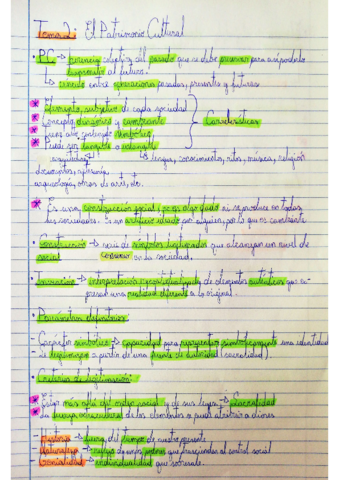 Tema 2: El Patrimonio Cultural
• PC → herencia colectiva del pasado que se debe preservar para así poderlo
transmitir al futuro.
↳ vínculo entre generaciones pasadas, presentes y futuras
* Elemento subjetivo de cada sociedad
* Concepto dinámico y cambiante
* contenido simbólico
* Puede ser tangible o intangible
Características
arquitectura
lengua, conocimientos, ritos, música, religión
documentos, artesanía,
arqueología, obras de arte, etc.
* Es una construcción social, pues algo dado ni se produce en todas
las sociedades. Es un artificio ideado por alguien, por lo que es cambiante
• Construcción → serie de símbolos legitimados que alcanzan un nivel de
social consenso en la sociedad.
• Invención → interpretación y contextualización de elementos auténticos que ex-
presan una realidad diferente a la original.
• Parámetros definitorios:
- Carácter simbólico → capacidad para representar simbólicamente una identidad
- Se legitiman a partir de una fuente de autoridad (sacralidad).
• Criterios de legitimación:
* Estar más allá del orden social y de sus leyes → Sacralidad
* La fuerza extracultural de los elementos se puede atribuir a dioses
- Historia → fuera del tiempo de nuestro presente
- Naturaleza → que trascienden al control social
- Genialidad → individualidad que sobresale.